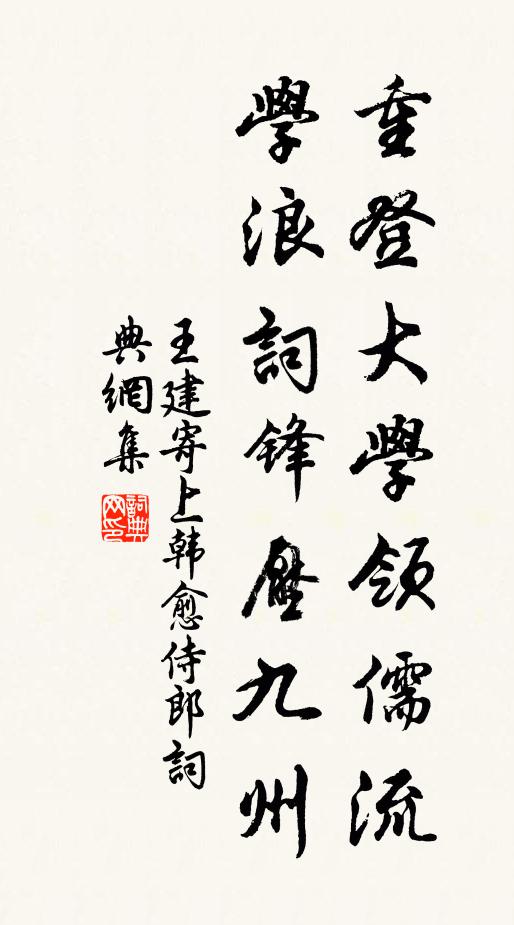 重登大學領儒流
學浪詞鋒壓九州
王建寄上韩愈侍郎詞
典網集
詞典
网印